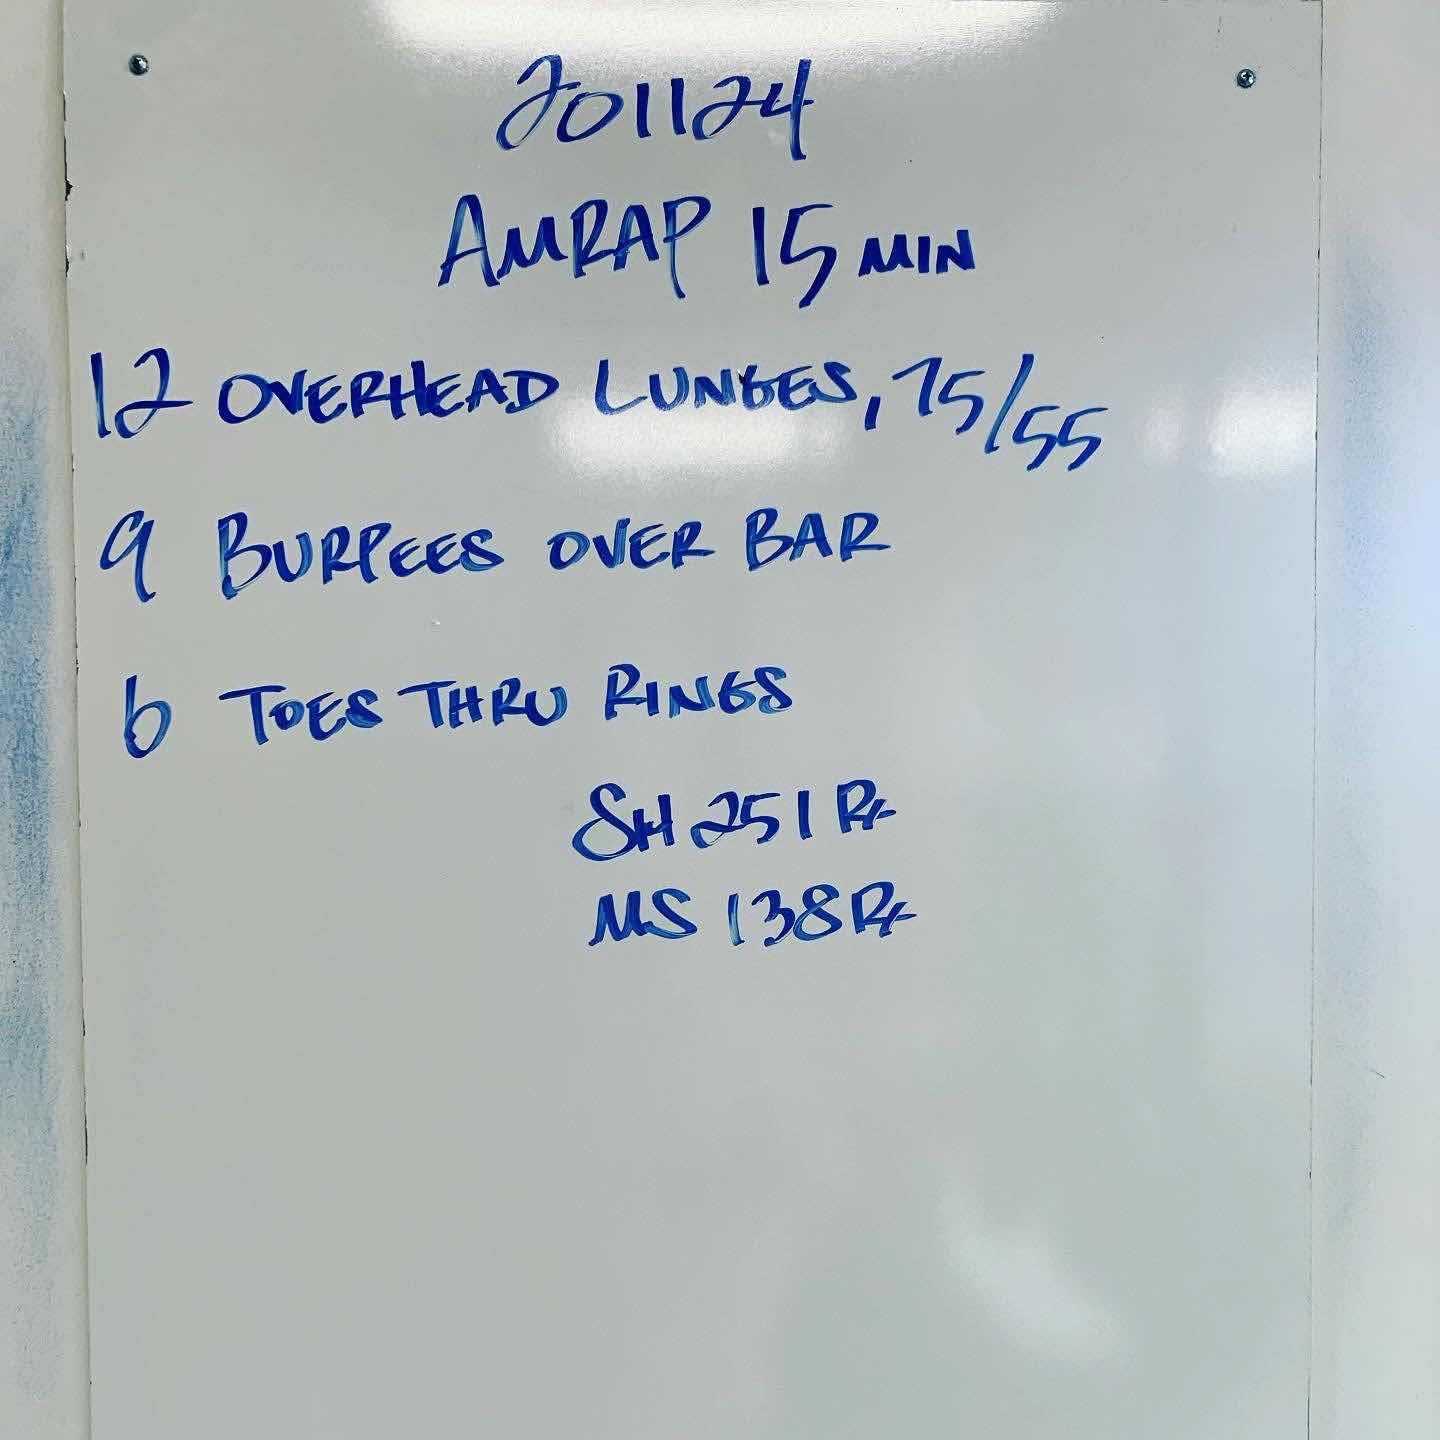 201124
AMRAP 15 MIN
12 OVERHEAD LUNGES, 75/55
9 BURPEES OVER BAR
6 TOES THRU RINGS
SH 251 Rx
MS 138 Rx